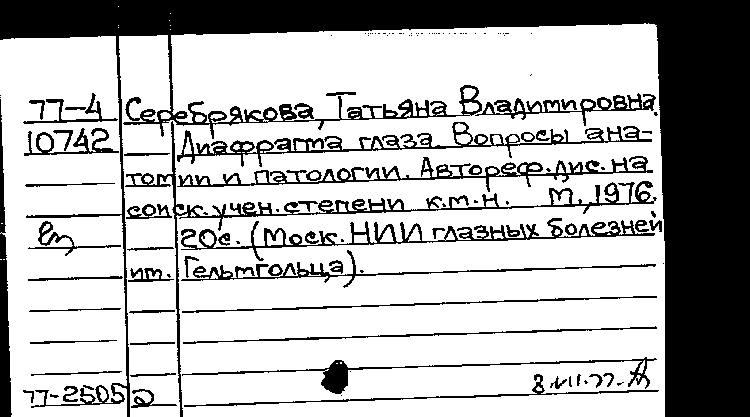 77-4 Серебрякова, Татьяна Владимировна.
10742 Диафрагма глаза. Вопросы ана-
томии и патологии. Автореф. дис. на
соиск. учен. степени к.м.н. М., 1976.
20с. (Моск. НИИ глазных болезней
им. Гельмгольца).
77-2505 8.VII.77